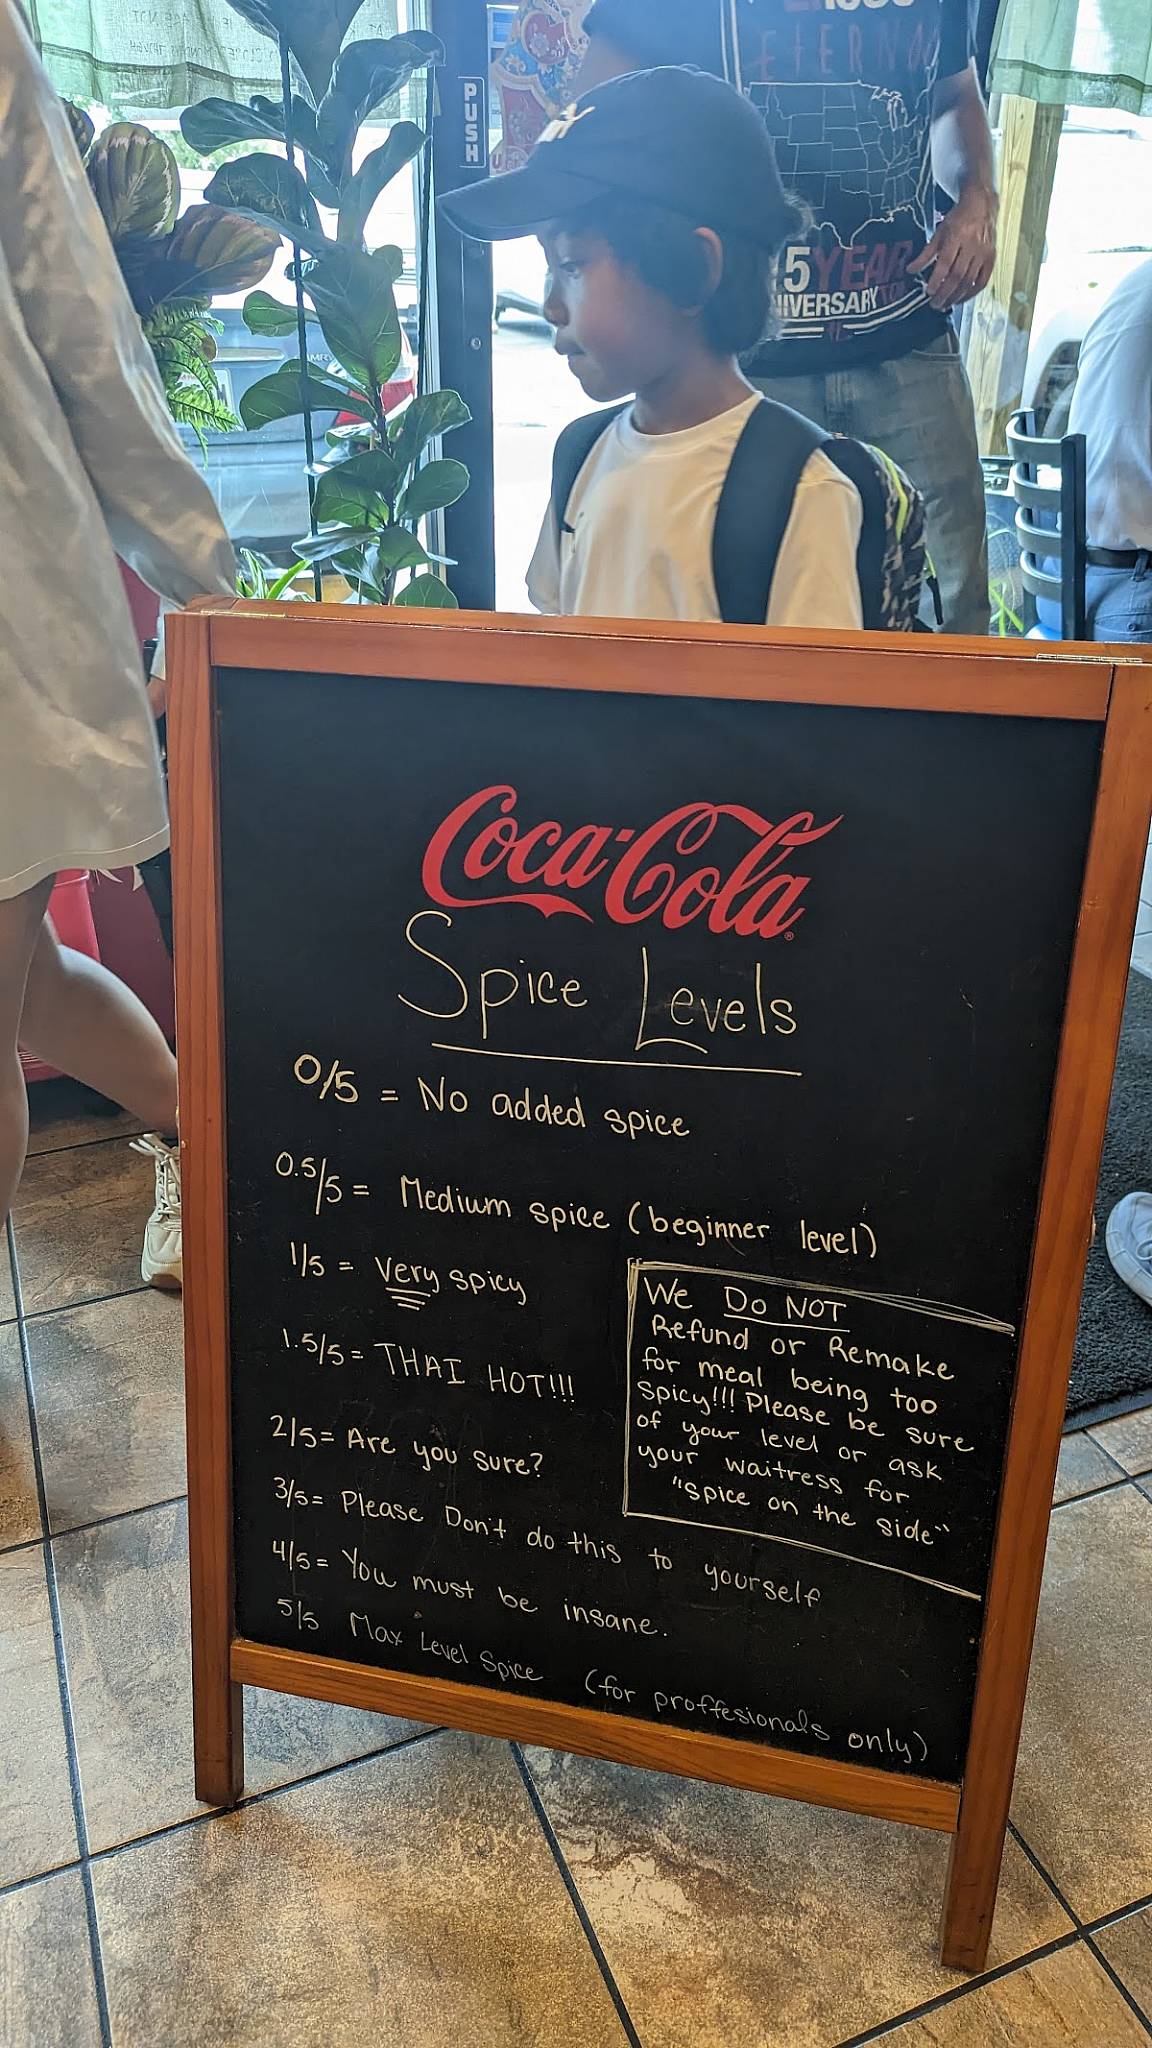 PUSH
ETERNA
5 YEAR
NIVERSARY
Coca-Cola
Spice Levels
0/5 = No added spice
0.5/5 = Medium spice (beginner level)
1/5 = very spicy
1.5/5 = THAI HOT!!!
2/5 = Are you sure?
3/5 = Please Don't do this to yourself
4/5 = You must be insane.
5/5 Max Level Spice (for proffesionals only)
We Do NOT
Refund or Remake
for meal being too
spicy!!! Please be sure
of your level or ask
your waitress for
"spice on the side"